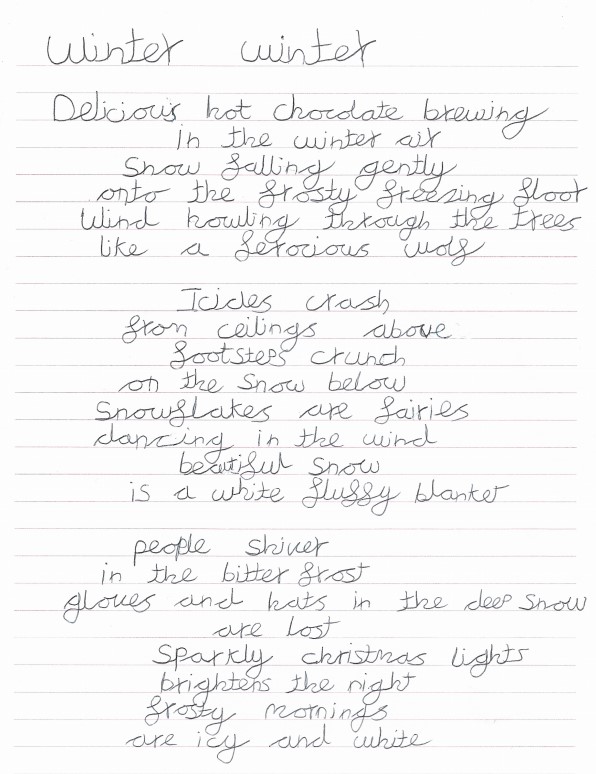 Winter winter
Delicious hot chocolate brewing
in the winter air
Snow falling gently
onto the frosty freezing floor
Wind howling through the trees
like a ferocious wolf
Icicles crash
from ceilings above
footsteps crunch
on the snow below
Snowflakes are fairies
dancing in the wind
beautiful snow
is a white fluffy blanket
people shiver
in the bitter frost
gloves and hats in the deep snow
are lost
Sparkly christmas lights
brightens the night
frosty mornings
are icy and white